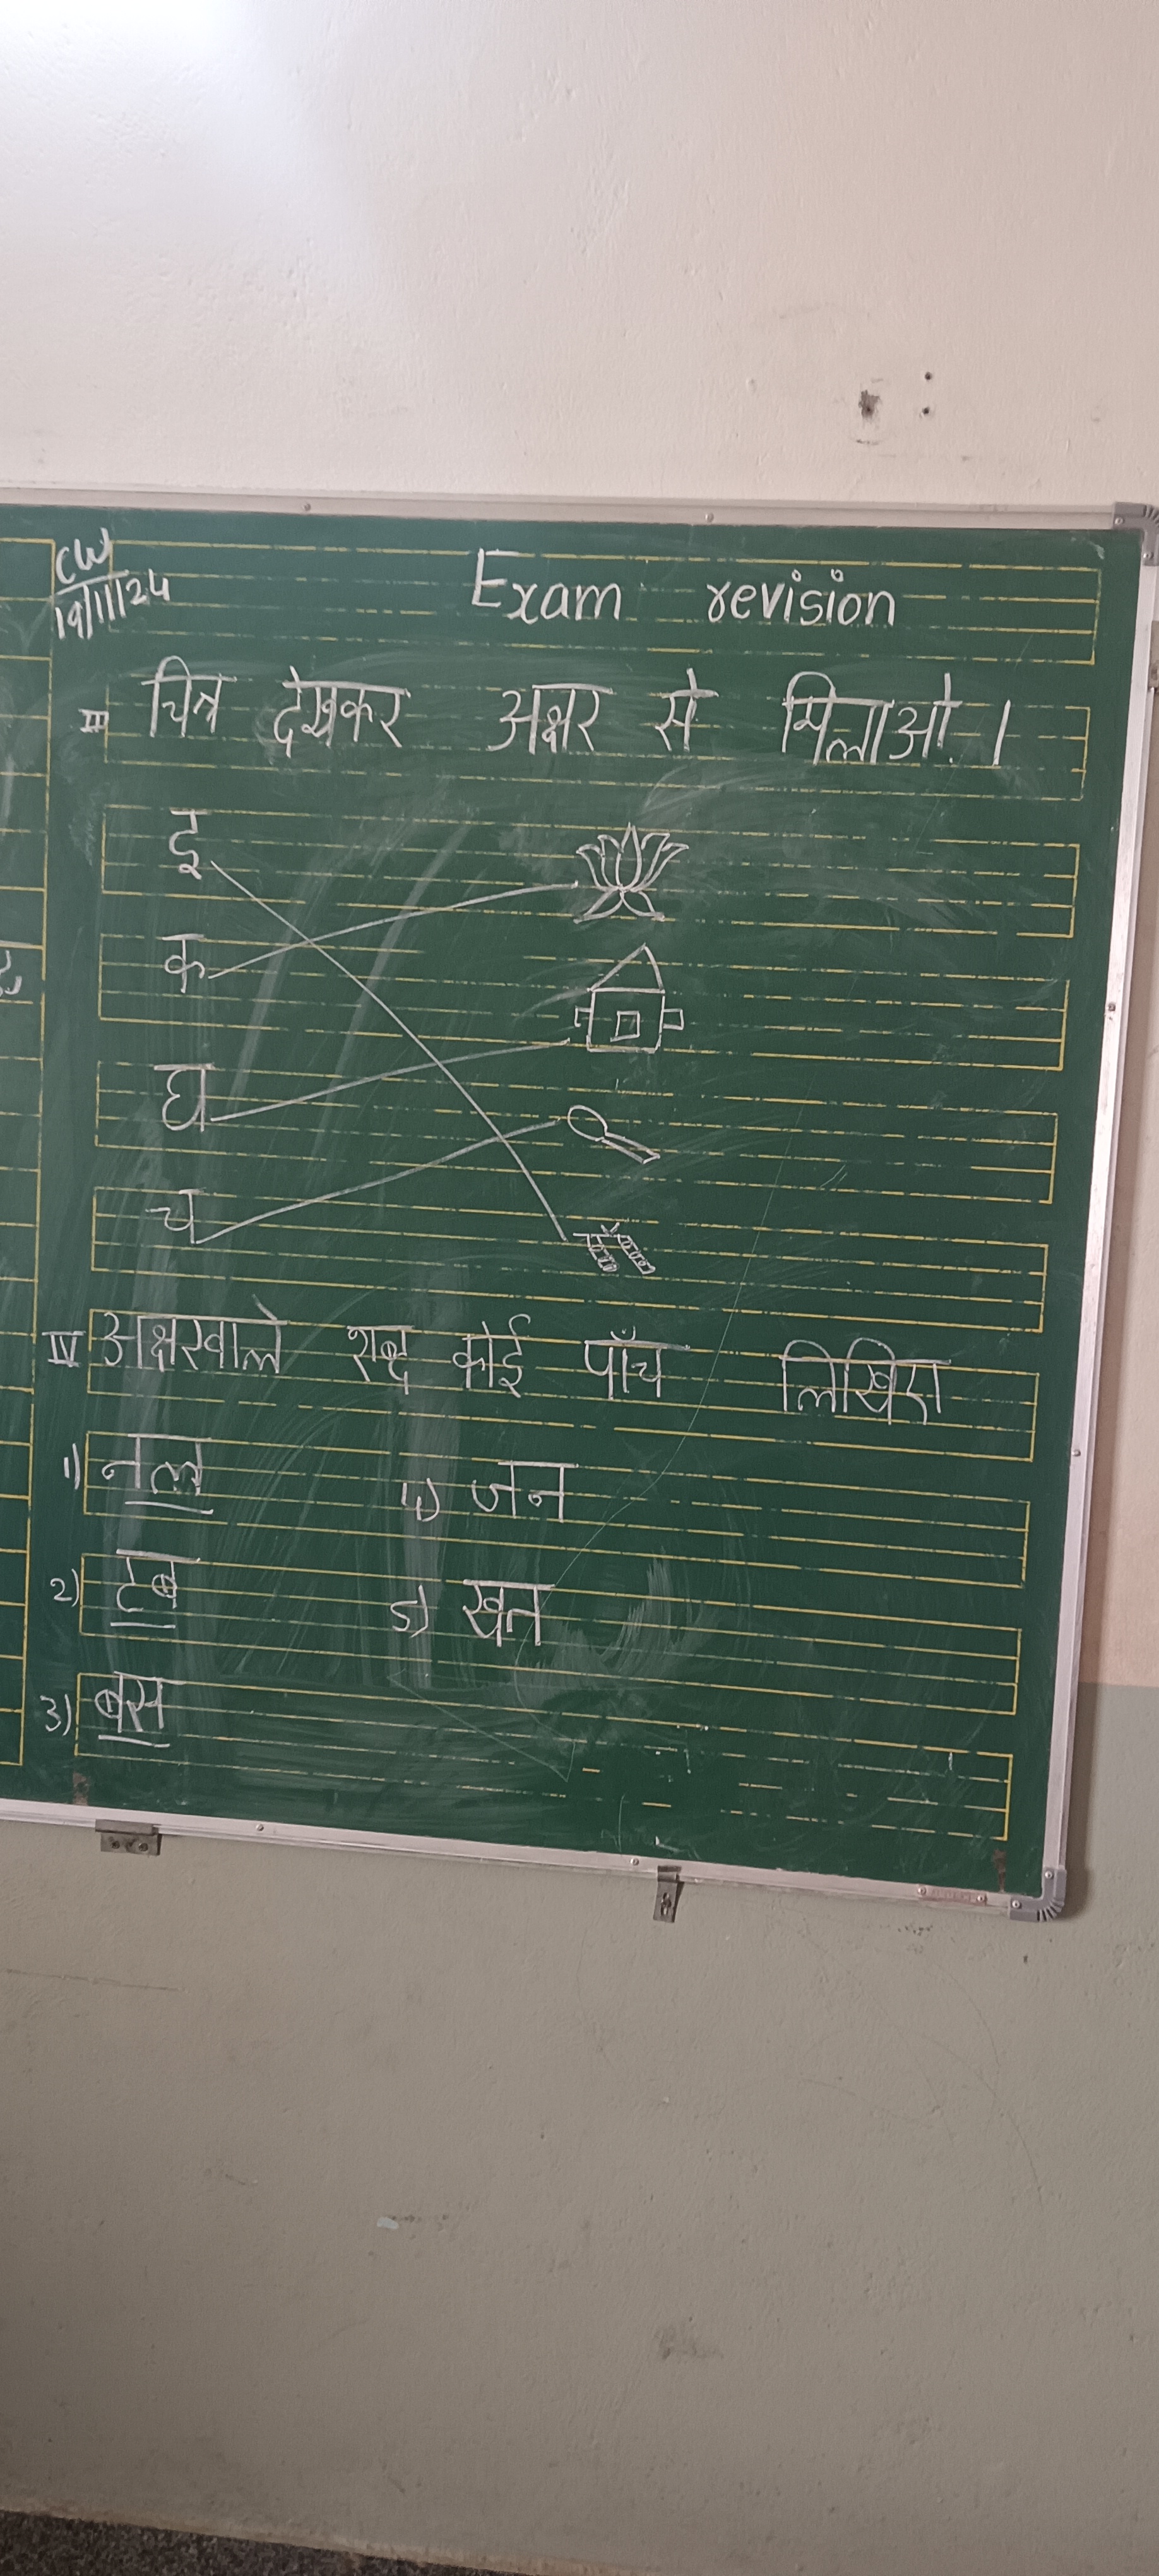 CW
19/11/24
Exam revision
III चित्र देखकर अक्षर से मिलाओ।
इ
क
घ
च
IV अक्षरवाले शब्द कोई पाँच लिखिए
1) नल 4) जन
2) टब 5) खत
3) बस